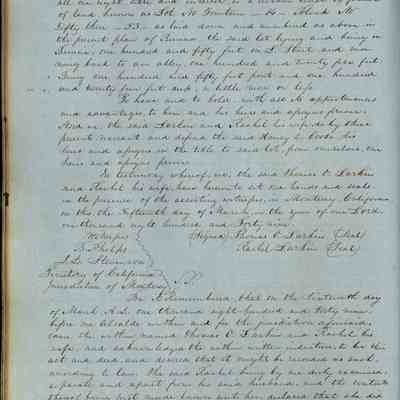 all our right title and interest in a certain
of land, known as Lot No Fourteen — 14 — Block No
Fifty three — 53 — as laid down and numbered as above in
the present plan of Benicia, the said lot lying and being in
Benicia, one hundred and fifty feet on L Street and run
ning back to an alley, one hundred and twenty five feet,
Being one hundred and fifty feet front and one hundred
and twenty five feet deep, a little more or less
To have and to hold, with all its appurtenances
and advantages, to him and his heirs and assigns forever.
And we, the said Larkin and Rachel his wife, do by these
presents warrant and defend the said Henry Cooke his
heirs and assigns in the title to said lot, from ourselves, our
heirs and assigns forever
In testimony whereof, we, the said Thomas O. Larkin
and Rachel his wife, have hereunto set our hands and seals
in the presence of the assisting witnesses, in Monterey California
on this, the Fifteenth day of March, in the year of our Lord,
one thousand eight hundred and Forty nine.
Witnesses (Signed) Thomas O. Larkin (Seal)
B. Phelps Rachel Larkin (Seal)
J. L. Stevenson
Territory of California
Jurisdiction of Monterey SS.
Be it Remembered, that on the Sixteenth day
of March A.D. one thousand eight hundred and Forty nine,
before me Alcalde within and for the jurisdiction aforesaid,
came the within named Thomas O. Larkin and Rachel his
wife, and acknowledged the within written indenture to be their
act and deed, and desired that it might be recorded as such,
according to law. The said Rachel being by me duly examined,
separate and apart from her said husband, and the contents
thereof being first made known unto her, declared that she did